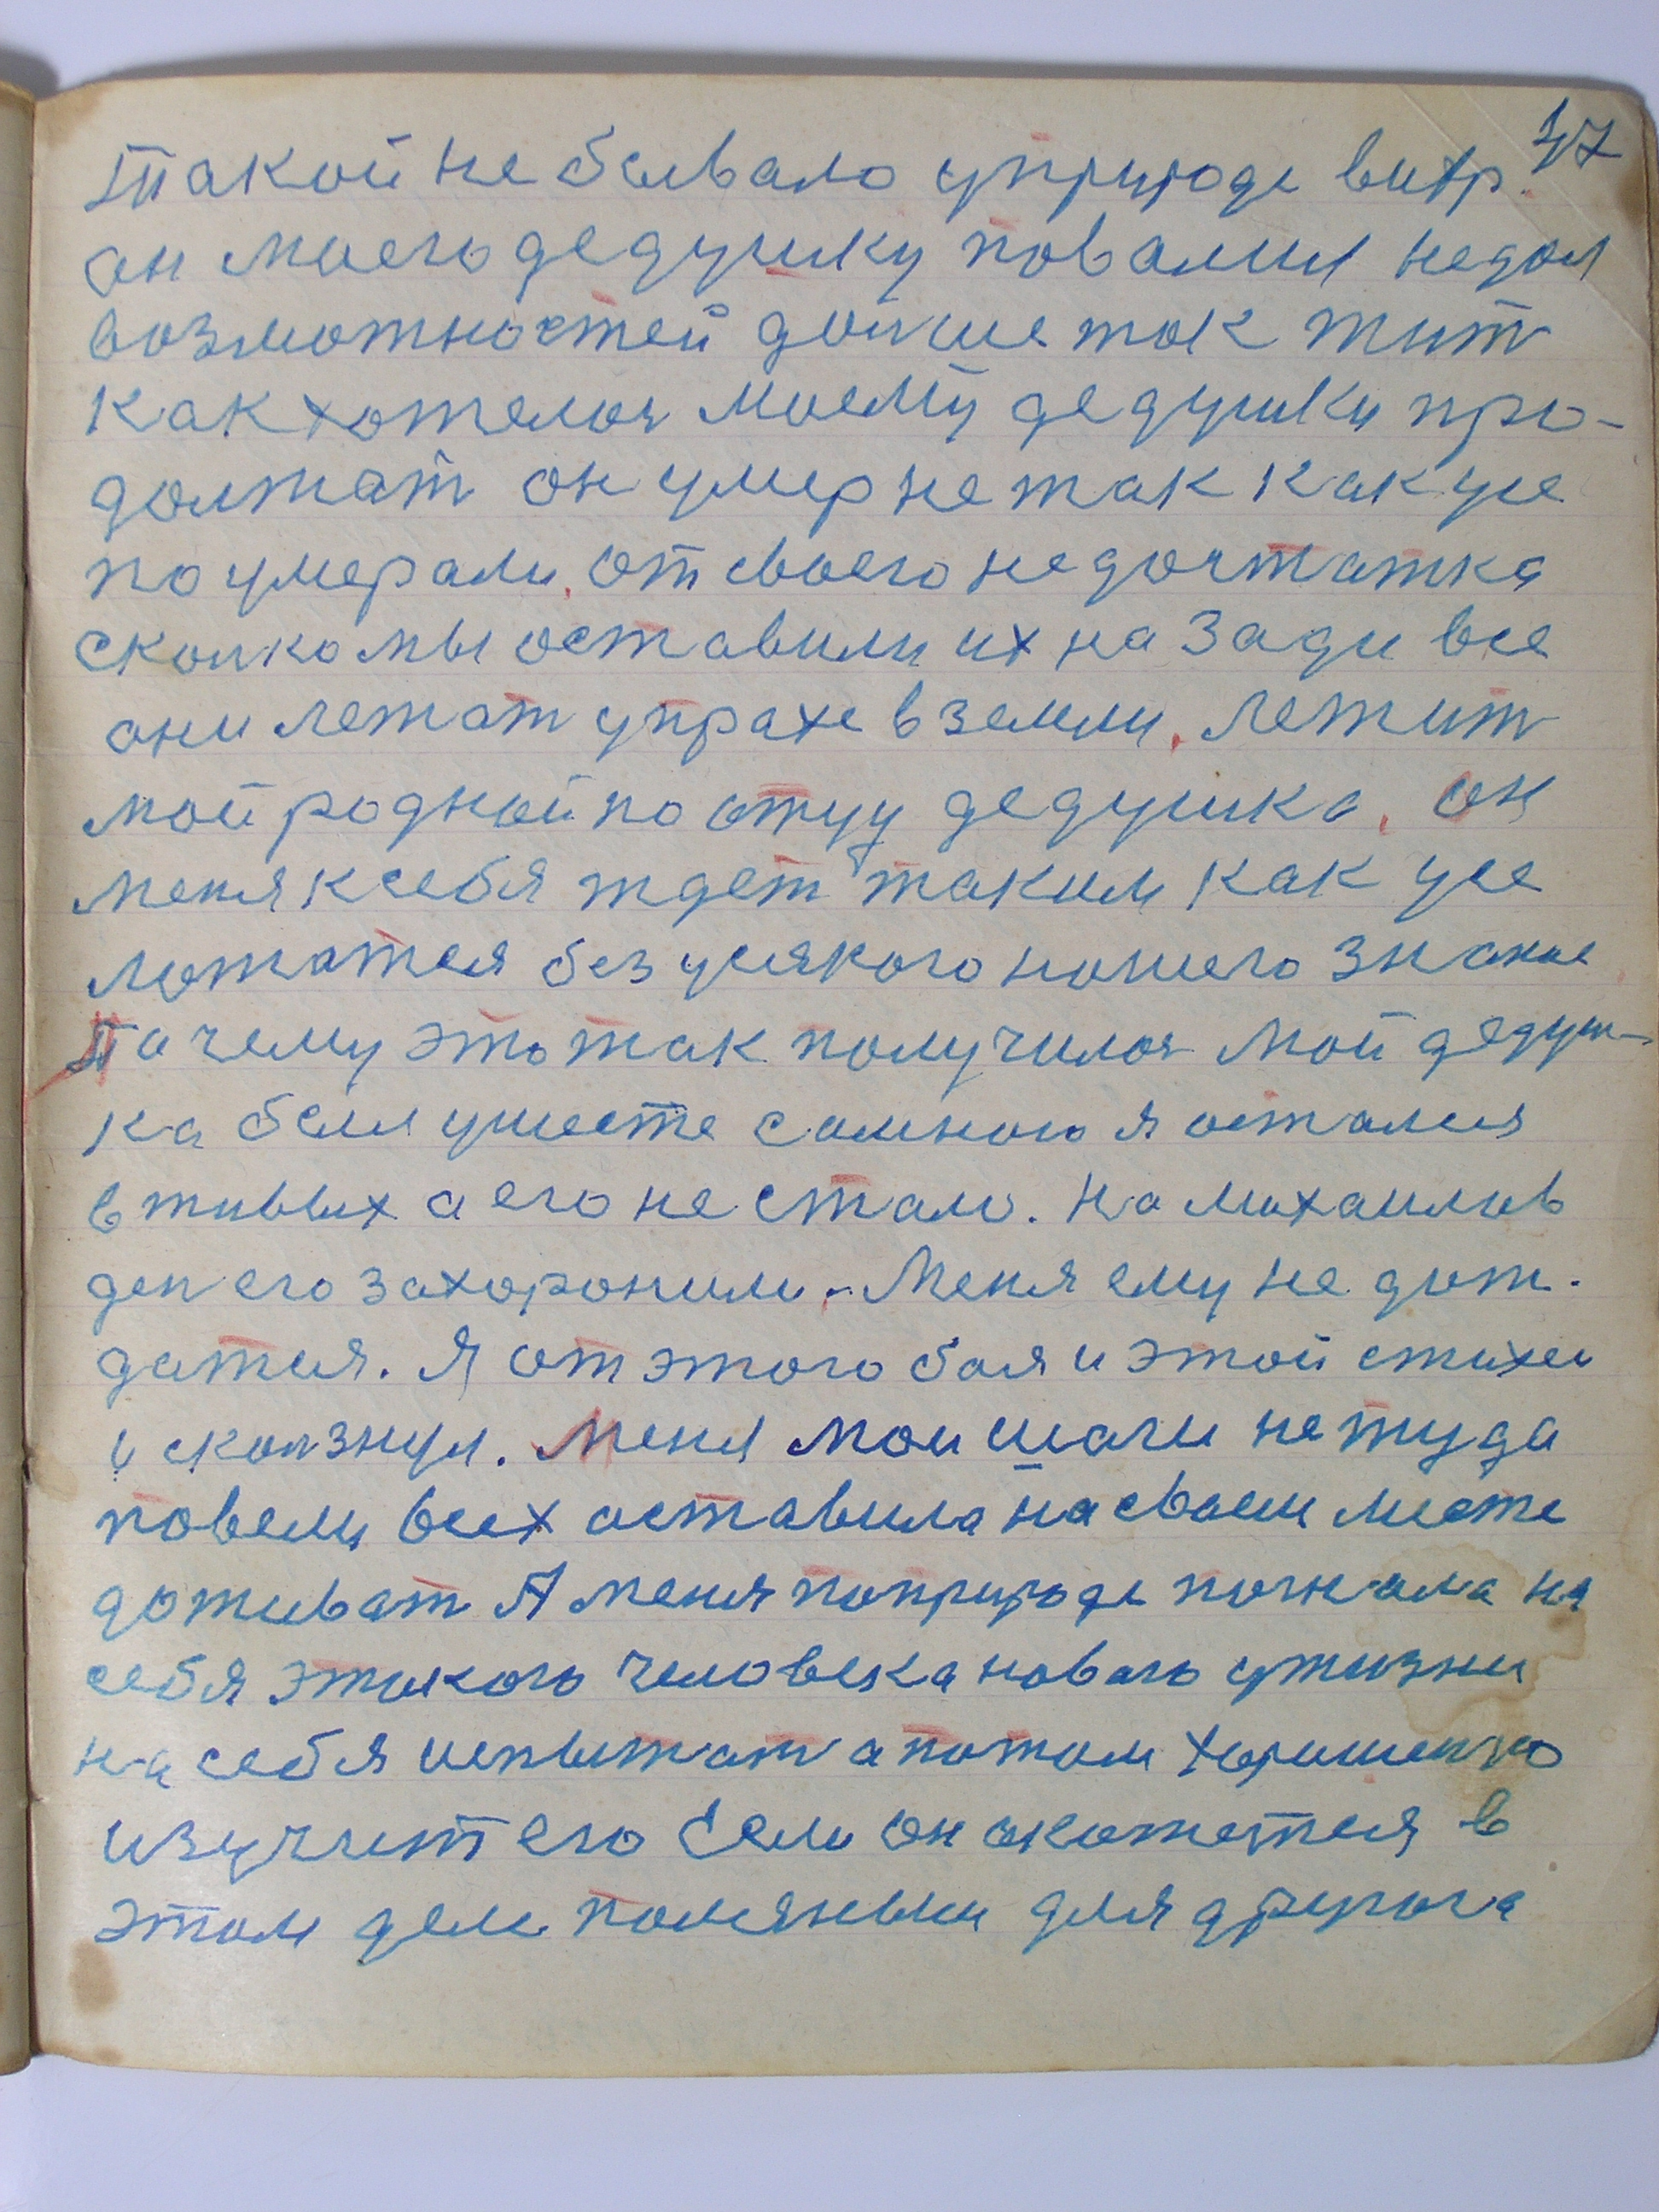 37
Такой не бывало уприроде вихр.
он моего дедушку повалил недал
возможностей долше так жит
как хотелося моему дедушки про-
должат он умер не так как усе
поумерали. от своего недостатка
сколко мы оставили их на зади все
они лежат упрахе в земли. лежит
мой родной по отцу дедушка. он
меня ксебя ждет таким как усе
ложатся без усякого нашего знание
Почему это так получилося мой дедуш-
ка был уместе самною я остался
в живых а его не стало. на михаилов
ден его захоронили. Меня ему не дож-
датся. Я от этого боя и этой стихеи
исколзнул. меня мои шаги не туда
повели всех оставила на своем месте
доживат А меня поприроде погнала на
себя этакого человека нового ужизни
на себя испытат а потом хорошенко
изучит его Если он окажется в
этом деле полезным для другога